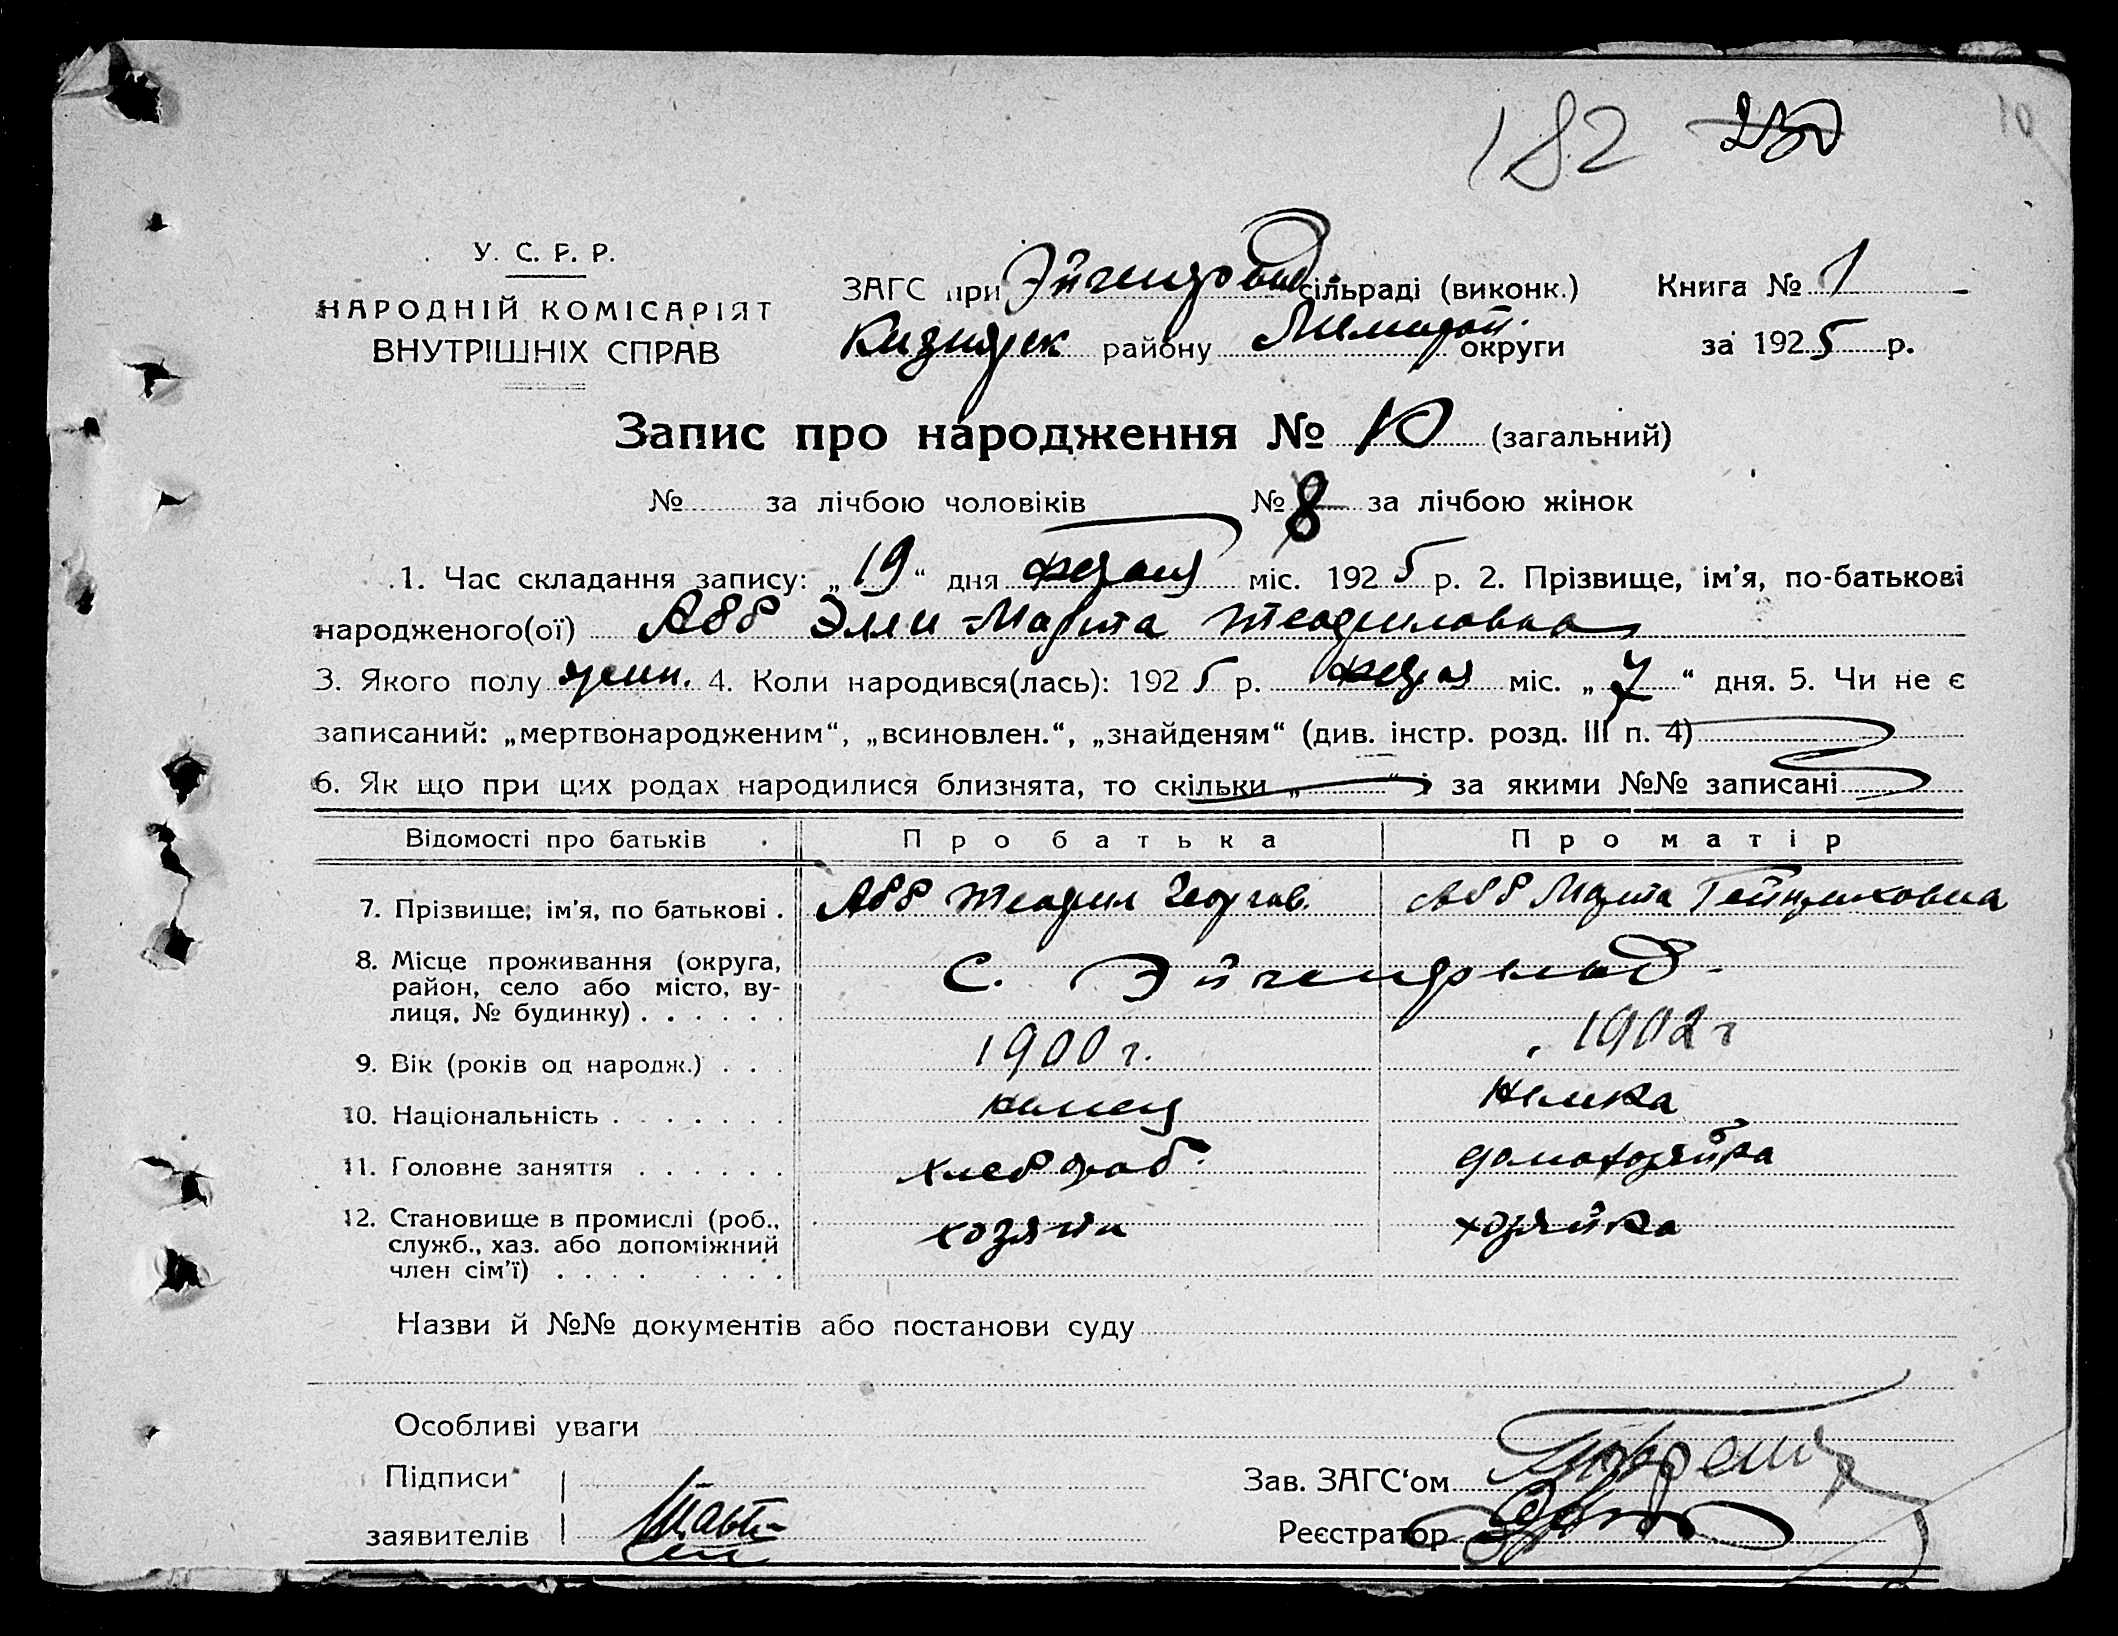 182 230 10
У. С. Р. Р.
ЗАГС при Эйгенфельд сільраді (виконк.) Книга № 1
НАРОДНІЙ КОМІСАРІЯТ
ВНУТРІШНІХ СПРАВ
району округи за 1925 р.
Запис про народження № 10 (загальний)
№ за лічбою чоловіків № 8 за лічбою жінок
1. Час складання запису: „19“ дня міс. 1925 р. 2. Прізвище, ім'я, по-батькові
народженого(ої) Абб Элли-Марта Теофиловна
3. Якого полу жен. 4. Коли народився(лась): 1925 р. міс. „7“ дня. 5. Чи не є
записаний: „мертвонародженим“, „всиновлен.“, „знайденям“ (див. інстр. розд. III п. 4)
6. Як що при цих родах народилися близнята, то скільки „ “ і за якими №№ записані
Відомості про батьків Про батька Про матір
7. Прізвище, ім'я, по батькові . Абб Теофил Георгиев. Абб Марта Гейнриховна
8. Місце проживання (округа,
район, село або місто, ву-
лиця, № будинку) . . . . . .
С. Эйгенфельд
9. Вік (років од народж.) . . . 1900 г. 1902 г
10. Національність . . . . . . . немец немка
11. Головне заняття . . . . . . хлебороб домохозяйка
12. Становище в промислі (роб.,
служб., хаз. або допоміжний
член сім'ї) . . . . . . . .
хозяин хозяйка
Назви й №№ документів або постанови суду
Особливі уваги
Підписи
заявителів
Зав. ЗАГС‘ом
Реєстратор